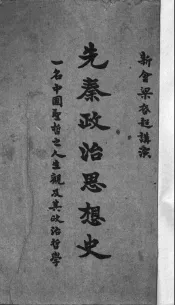 新會梁啟超講演
先秦政治思想史
一名中國聖哲之人生觀及其政治哲學